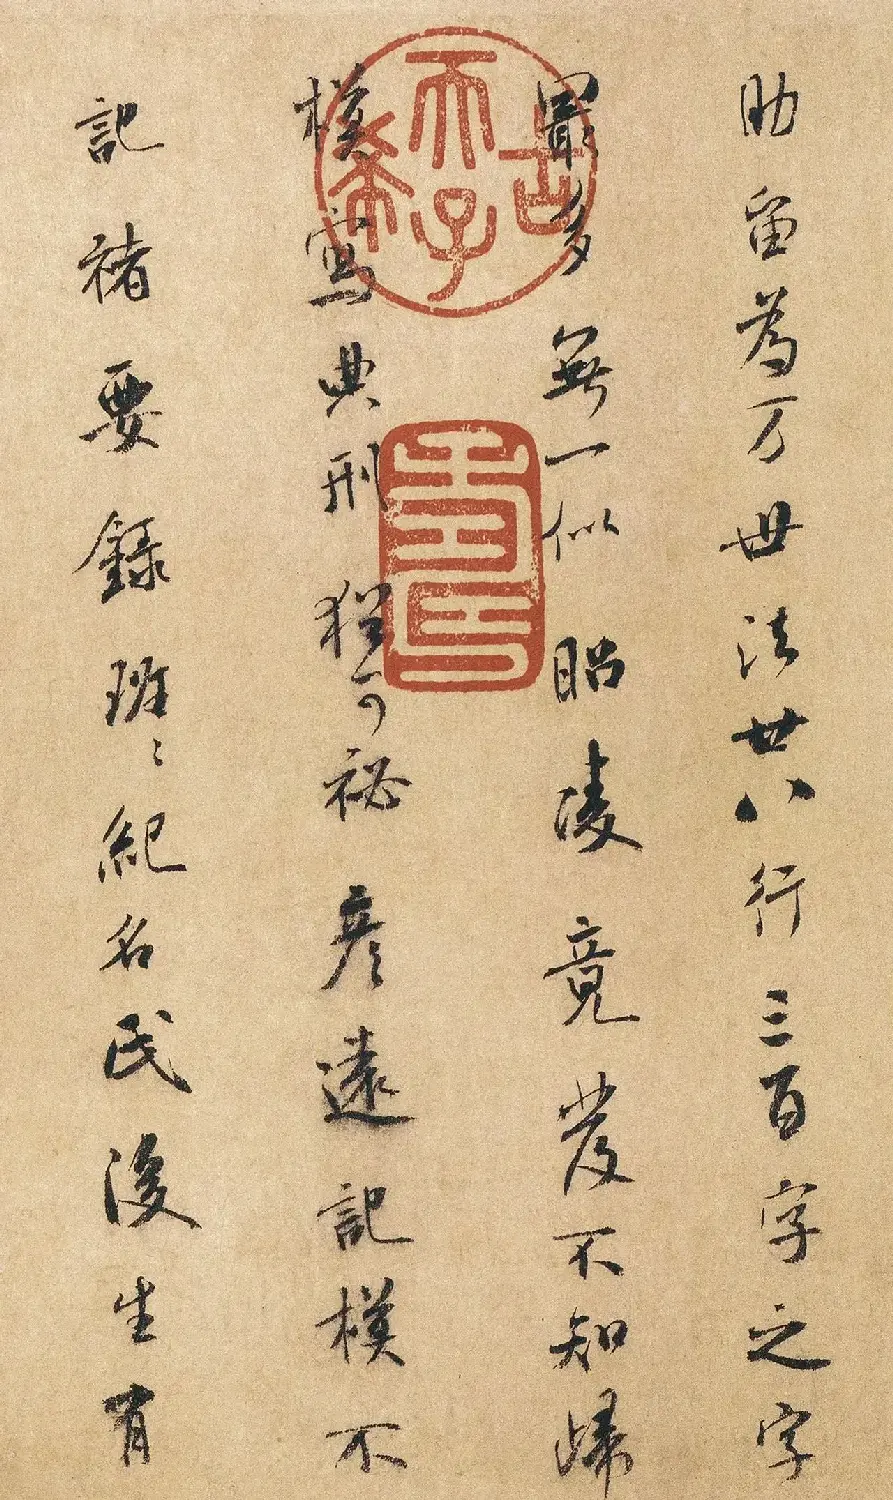 助留為万世法廿八行三百字之字
最多無一似昭陵竟發不知歸
模寫典刑猶可秘彥遠記模不
記褚要錄班〻紀名氏後生有